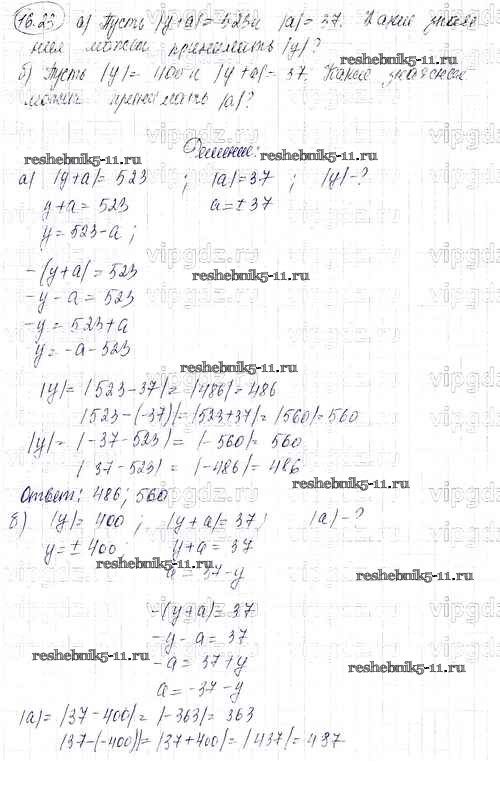 16.23 а) Пусть |y+a|= 523 и |a|= 37. Какие значе
ния может принимать |y|?
б) Пусть |y|= 400 и |y+a|= 37. Какие значения
может принимать |a|?
Решение:
reshebnik5-11.ru reshebnik5-11.ru
а) |y+a|= 523 ; |a|=37 ; |y|-?
y+a= 523 a=±37
y= 523-a ;
vipgdz.ru
-(y+a)= 523 reshebnik5-11.ru
-y-a= 523
-y= 523+a
y= -a-523
reshebnik5-11.ru
|y|= |523-37|= |486|= 486
|523-(-37)|= |523+37|= |560|= 560
|y|= |-37-523|= |-560|= 560
|37-523|= |-486|= 486
reshebnik5-11.ru
Ответ: 486; 560
б) |y|= 400 ; |y+a|= 37 ; |a|-?
y=±400 ; y+a= 37
reshebnik5-11.ru a= 37-y reshebnik5-11.ru
-(y+a)= 37
-y-a= 37
reshebnik5-11.ru -a= 37+y reshebnik5-11.ru
a= -37-y
|a|= |37-400|= |-363|= 363
|37-(-400)|= |37+400|= |437|= 437